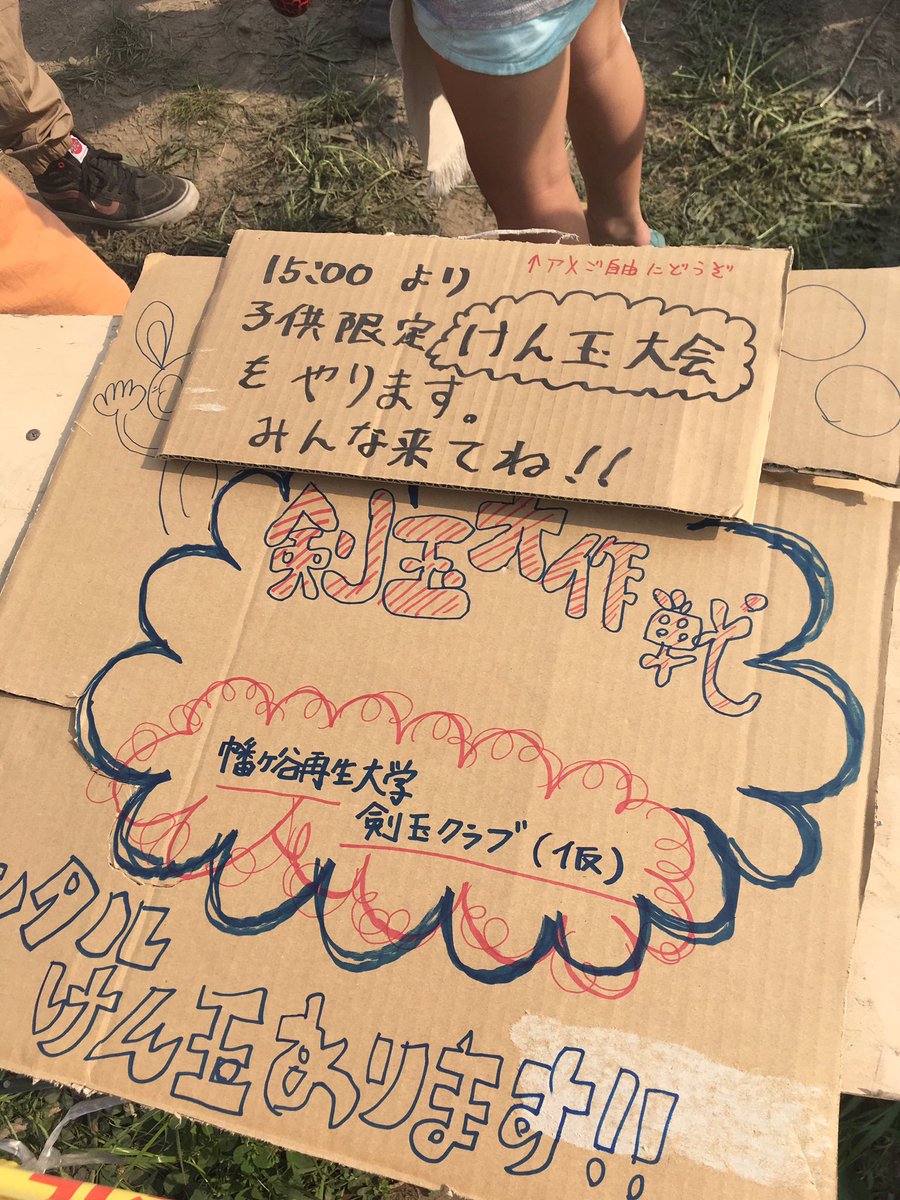 ↑アメご自由にどうぞ
15:00 より
子供限定 けん玉大会
をやります。
みんな来てね!!
剣玉大作戦
幡ヶ谷再生大学
剣玉クラブ(仮)
ンタル
けん玉あります!!